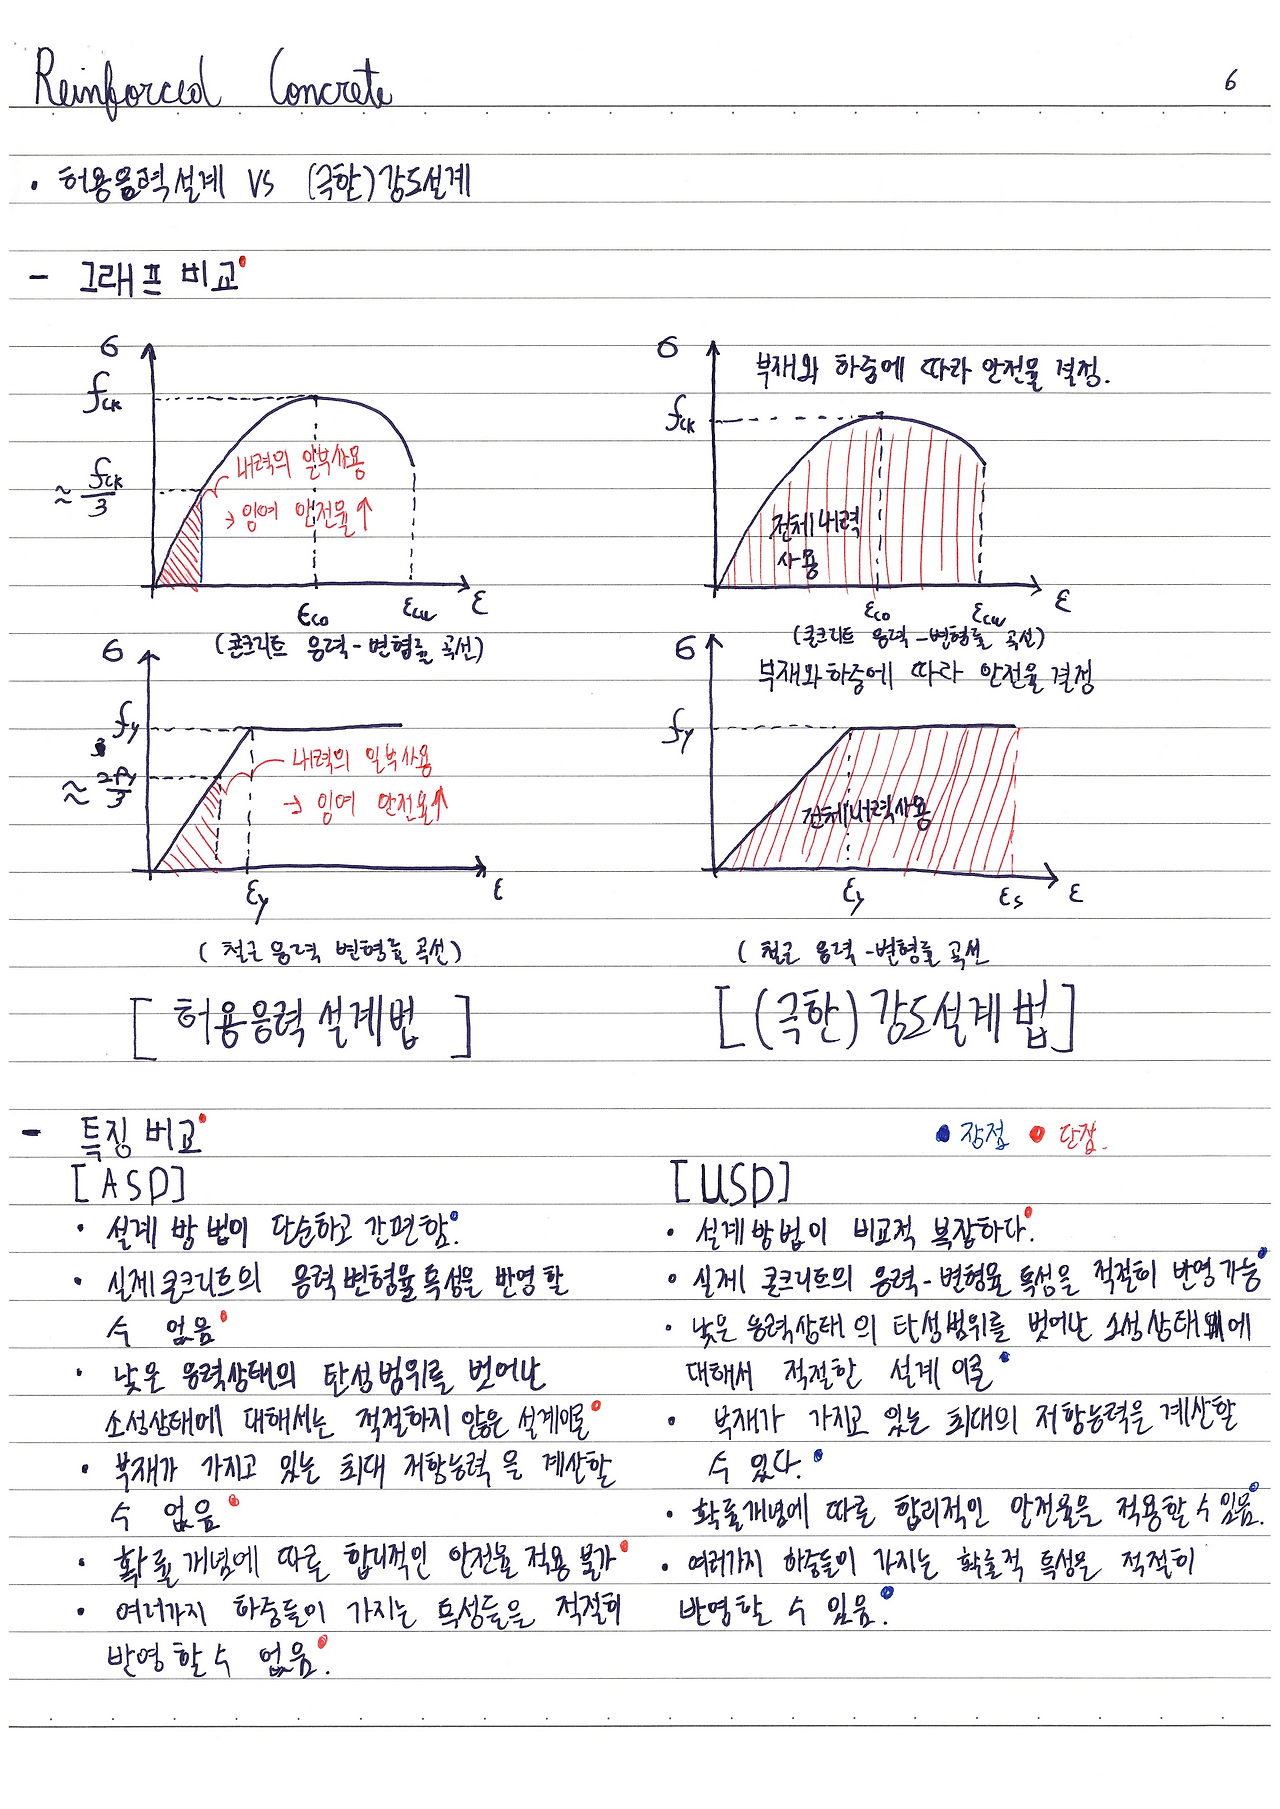 Reinforced Concrete
6
· 허용응력설계 vs (극한)강도설계
- 그래프 비교
σ
fck
≈ fck/3
내력의 일부사용
→ 잉여 안전율↑
εco
εcu
ε
(콘크리트 응력-변형률 곡선)
σ
부재와 하중에 따라 안전율 결정.
fck
전체내력
사용
εco
εcu
ε
(콘크리트 응력-변형률 곡선)
σ
fy
≈ 2fy/3
내력의 일부사용
→ 잉여 안전율↑
εy
ε
(철근 응력 변형률 곡선)
σ
부재와 하중에 따라 안전율 결정
fy
전체내력사용
εy
εs
ε
(철근 응력-변형률 곡선
[허용응력 설계법]
[(극한)강도설계법]
- 특징 비교
● 장점 ● 단점.
[ASD]
· 설계 방법이 단순하고 간편함.
· 실제콘크리트의 응력변형율특성을 반영할
수 없음
· 낮은 응력상태의 탄성범위를 벗어난
소성상태에 대해서는 적절하지 않은 설계이론
· 부재가 가지고 있는 최대 저항능력을 계산할
수 없음
· 확률개념에 따른 합리적인 안전율 적용 불가
· 여러가지 하중들이 가지는 특성들을 적절히
반영할수 없음.
[USD]
· 설계방법이 비교적 복잡하다.
· 실제 콘크리트의 응력-변형율 특성을 적절히 반영가능
· 낮은 응력상태의 탄성범위를 벗어난 소성상태에
대해서 적절한 설계 이론
· 부재가 가지고 있는 최대의 저항능력을 계산할
수 있다.
· 확률개념에 따른 합리적인 안전율을 적용할 수 있음.
· 여러가지 하중들이 가지는 확률적 특성을 적절히
반영할 수 있음.